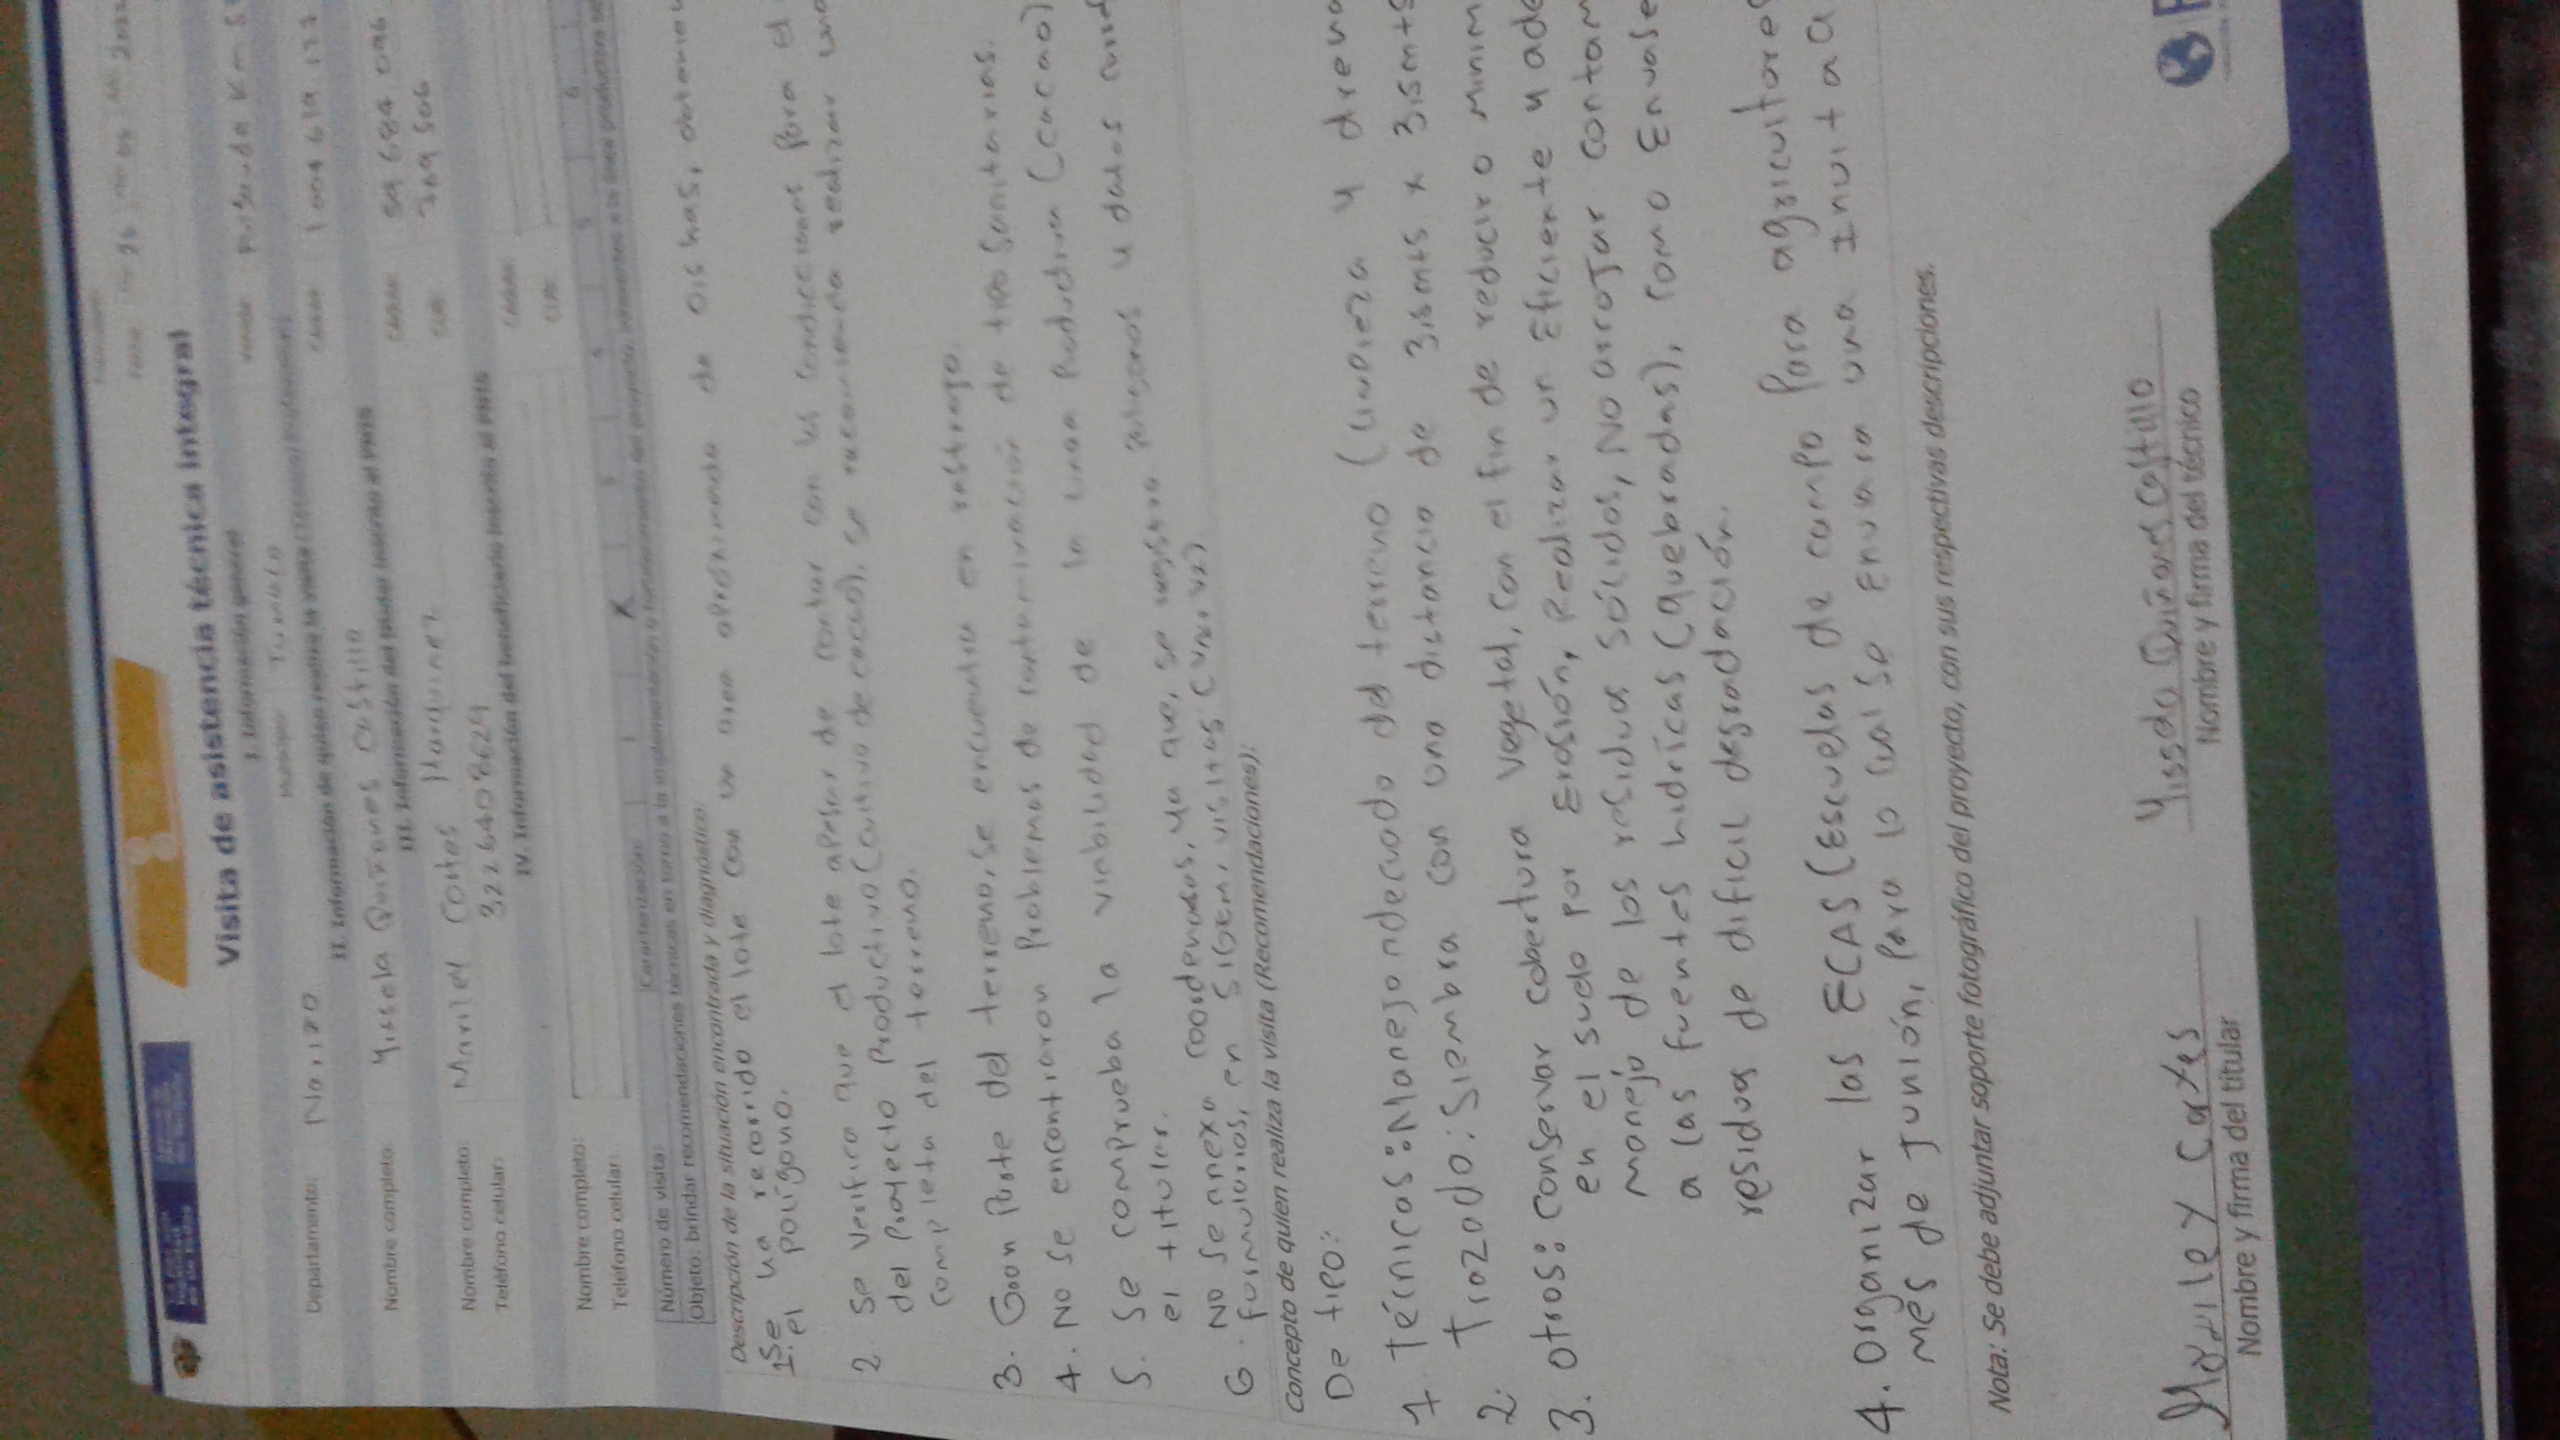 Visita de asistencia técnica integral
I. Información general
Departamento: Nariño Municipio: Tumaco Vereda
II. Información de quien realiza la visita
Nombre completo Yissela Quiñones Castillo
III. Información del titular inscrito al PNIS
Nombre completo Mariley Cortes Marquinez
Teléfono celular: 3226408629
IV. Información del beneficiario inscrito al PNIS
Nombre completo:
Teléfono celular:
Número de visita: Caracterización 1 X 3 4 5 6
Objeto: brindar recomendaciones técnicas en torno a la implementación
Descripción de la situación encontrada y diagnóstico
1. Se ha recorrido el lote con un area aproximada de 0.5 has,
el polígono.
2. Se verifico que el lote apesar de contar con las condiciones para el
del Proyecto Productivo (Cultivo de cacao), se recomienda realizar una
completa del terreno.
3. Gran Parte del terreno, se encuentra en rastrojo.
4. No se encontraron Problemas de contaminación de tipo Sanitarias.
5. Se comprueba la viabilidad de la linea Productiva (cacao)
el titular.
6. No se anexa coordenadas, ya que, se registro poligonos y datos
formularios, en SIGEM, visitas (V1 y V2)
Concepto de quien realiza la visita (Recomendaciones):
De tipo:
1. Técnicas: Manejo adecuado del terreno (Limpieza y drena
2. Trazado: Siembra con una distancia de 3.5mts x 3.5mts
3. Otros: Conservar cobertura vegetal, con el fin de reducir o minim
en el suelo por Erosión, Realizar un Eficiente y ade
manejo de los residuos sólidos, No arrojar contam
a las fuentes hidrícas (quebradas), como Envase
residuos de dificil degradación.
4. Organizar las ECAS (Escuelas de campo Para agricultores
mes de Junión, Para lo cual se Enviara una Invitaci
Nota: Se debe adjuntar soporte fotográfico del proyecto, con sus respectivas descripciones.
Mariley Cortes Yissela Quiñones Castillo
Nombre y firma del titular Nombre y firma del técnico